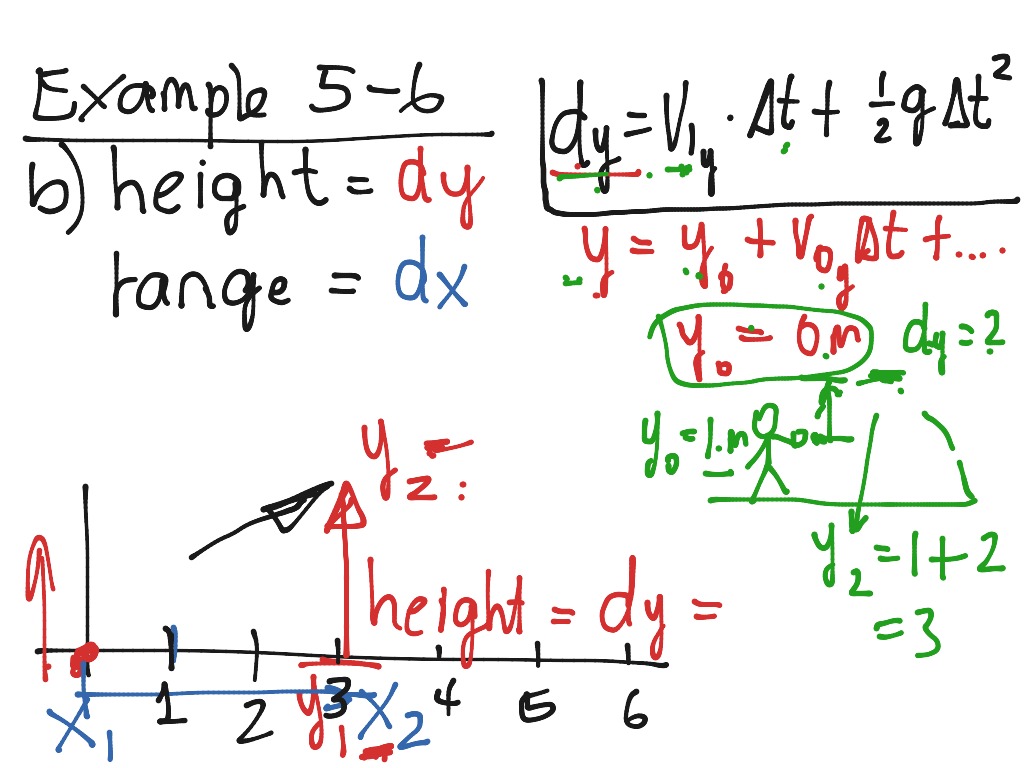 Example 5-6
b) height = dy
range = dx
dy = V₁y · Δt + ½ g Δt²
y = y₀ + V₀y Δt + ....
y₀ = 0m
dy = ?
y₀ = 1.m
y₂ = 1 + 2
= 3
y₂ =
height = dy =
1 2 3 4 5 6
x₁ y₁ x₂